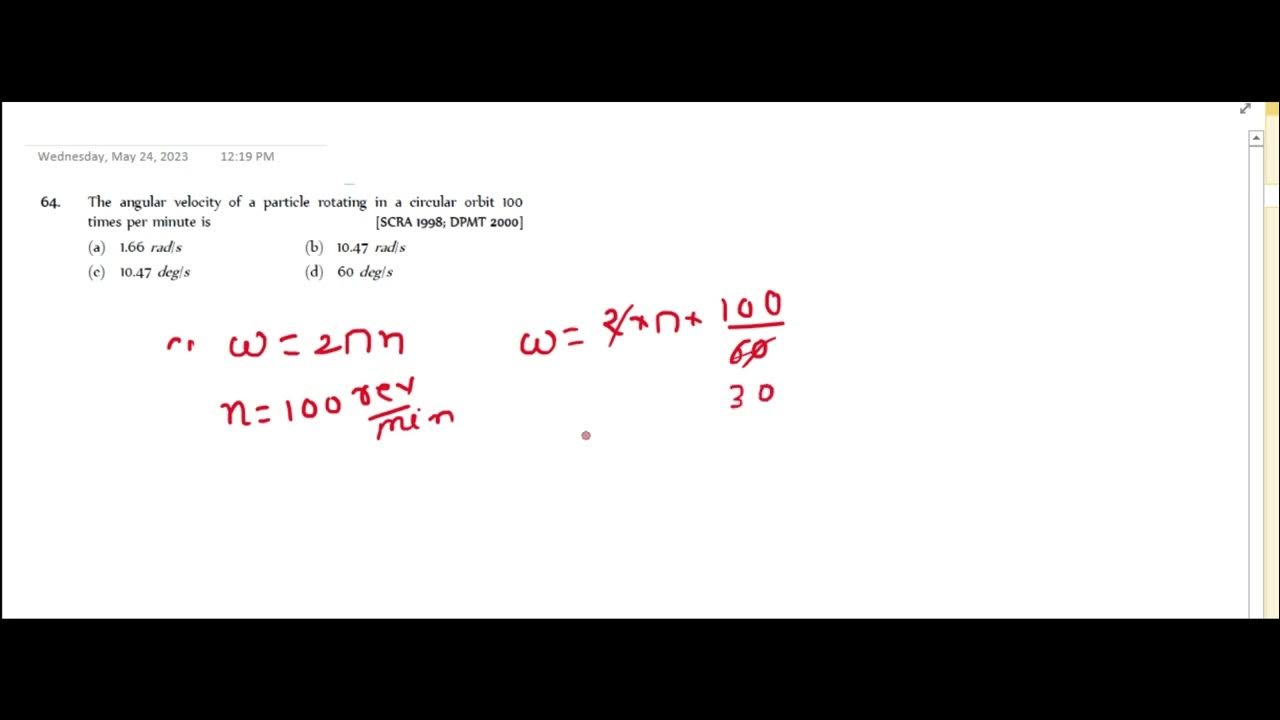 Wednesday, May 24, 2023 12:19 PM
64. The angular velocity of a particle rotating in a circular orbit 100
times per minute is [SCRA 1998; DPMT 2000]
(a) 1.66 rad/s (b) 10.47 rad/s
(c) 10.47 deg/s (d) 60 deg/s
∵ ω = 2πn
n = 100 rev/min
ω = 2 × π × 100/60
30